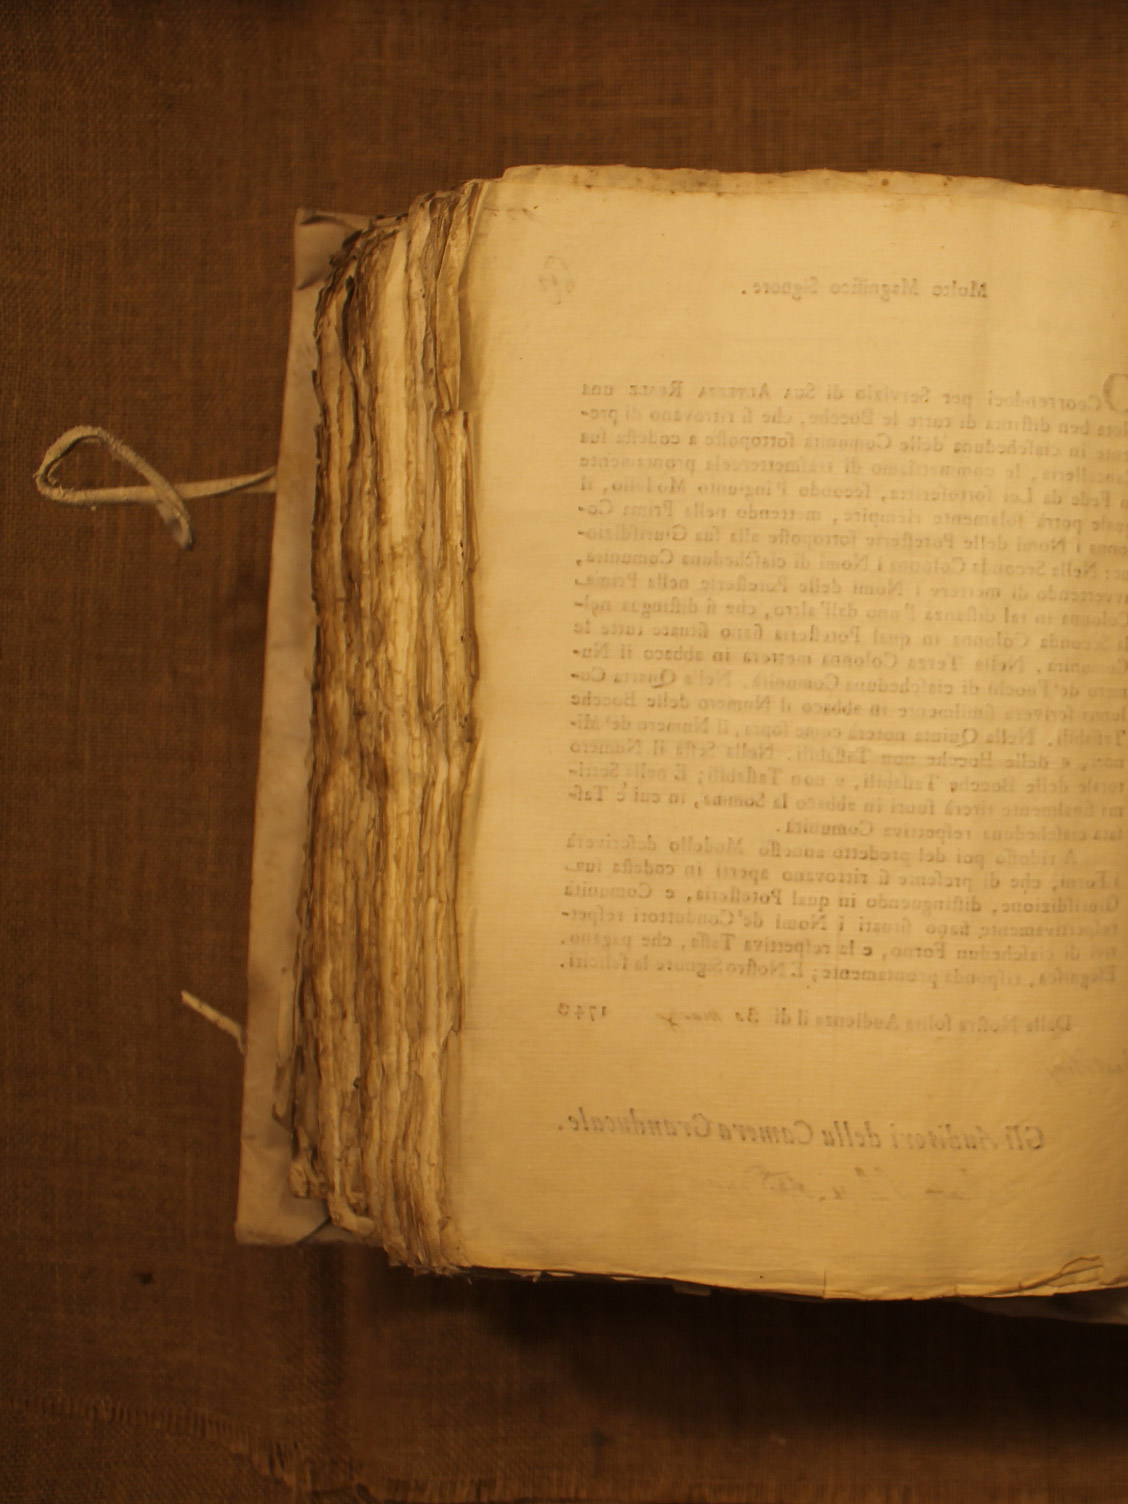 Molto Magnifico Signore.
Occorrendoci per Servizio di SUA ALTEZZA REALE una
Nota ben distinta di tutte le Bocche, che si ritrovano di pre-
sente in ciascheduna delle Comunità sottoposte a codesta sua
Cancelleria, le commettiamo di trasmettercela prontamente
Fede da Lei sottoscritta, secondo l'ingiunto Modello, il
quale potrà solamente riempire, mettendo nella Prima Co-
lonna i Nomi delle Potesterie sottoposte alla sua Giurisdizio-
ne: Nella Seconda Colonna i Nomi di ciascheduna Comunità,
avvertendo di mettere i Nomi delle Potesterie nella Prima
Colonna in tal distanza l'uno dall'altro, che si distingua nel-
la Seconda Colonna in qual Potesteria siano situate tutte le
Comunità, Nella Terza Colonna metterà in abbaco il Nu-
mero de' Fuochi di ciascheduna Comunità. Nella Quarta Co-
lonna scriverà similmente in abbaco il Numero delle Bocche
Tassabili. Nella Quinta noterà come sopra, il Numero de' Mi-
nori, e delle Bocche non Tassabili. Nella Sesta il Numero
totale delle Bocche Tassabili, e non Tassabili; E nella Setti-
ma finalmente tirerà fuori in abbaco la Somma, in cui è Tas-
sata ciascheduna respettiva Comunità.
A ridosso poi del predetto annesso Modello descriverà
i Forni, che di presente si ritrovano aperti in codesta sua
Giurisdizione, distinguendo in qual Potesteria, e Comunità
respettivamente siano situati i Nomi de' Conduttori respet-
tivi di ciaschedun Forno, e la respettiva Tassa, che pagano.
Eseguisca, risponda prontamente; E Nostro Signore la feliciti.
Dalla Nostra solita Audienza il dì 30 marzo 1743
Gli Auditori della Camera Granducale.